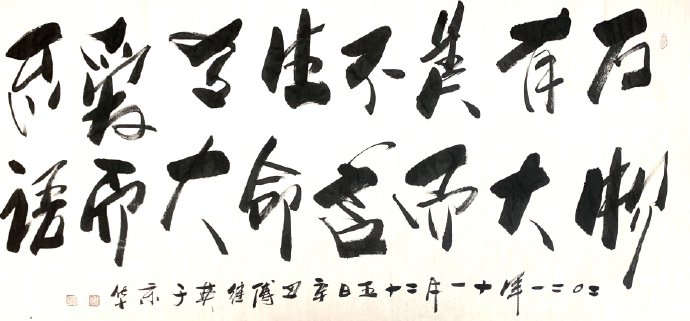 万物
有大
美而
不言
生命
大
爱而
语
二〇二一年十一月二十五日辛丑傅继英于京华